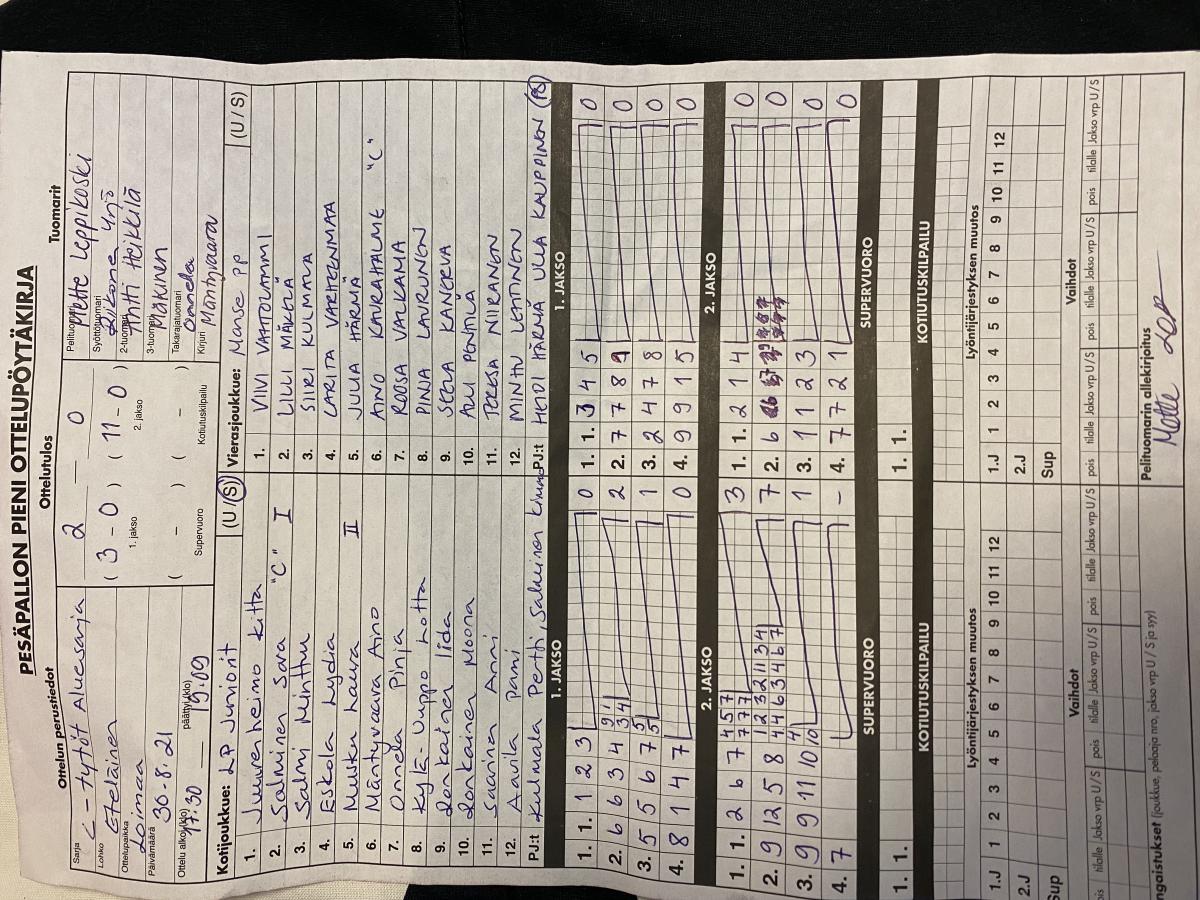 PESÄPALLON PIENI OTTELUPÖYTÄKIRJA
Ottelun perustiedot
Sarja C-tytöt Aluesarja
Lohko Eteläinen
Ottelupaikka Loimaa
Päivämäärä 30.8.21
Ottelu alkoi (klo) 17.30 päättyi (klo) 19.09
Ottelutulos
2 — 0
( 3 - 0 ) ( 11 - 0 )
1. jakso 2. jakso
( - ) ( - )
Supervuoro Kotiutuskilpailu
Tuomarit
Pelituomari Mette Leppikoski
Syöttötuomari Yrjö
2-tuomari Ahti Heikkilä
3-tuomari Mäkinen
Takarajatuomari Onnela
Kirjuri Mäntyvaara
Kotijoukkue: LP Juniorit (U / S)
1. Juurenheimo Kitta
2. Salminen Sara "C" I
3. Salmi Minttu
4. Eskola Lydia
5. Muikku Laura II
6. Mäntyvaara Aino
7. Onnela Pinja
8. Kylä-Uuppo Lotta
9. Jonkainen Iida
10. Jonkainen Moona
11. Saarina Anni
12. Aavila Pami
PJ:t Kulmala Pertti, Salminen Kimmo
Vierasjoukkue: Manse PP (U / S)
1. VIIVI VAATOLAMMI
2. LILLI MÄKELÄ
3. SIIRI KULMALA
4. LARITA VARHENMAA
5. JULIA HÄRMÄ
6. AINO KAURAHALME "C"
7. ROOSA VALKAMA
8. PINJA LAURUNEN
9. SEELA KANERVA
10. ALLI PENTTILÄ
11. TERESA NIIRANEN
12. MINTTU LEHTINEN
PJ:t HEIDI HÄRMÄ ULLA KAUPPINEN (PS)
1. JAKSO
1. 1. 1 2 3 0
2. 6 6 3 4 9 1 3 4 2
3. 5 5 6 7 5 5 1
4. 8 1 4 7 0
1. JAKSO
1. 1. 3 4 5 0
2. 7 7 8 9 0
3. 2 4 7 8 0
4. 9 9 1 5 0
2. JAKSO
1. 1. 2 6 7 4 5 7 7 7 7 3
2. 9 12 5 8 1 2 3 2 11 3 4 4 4 6 3 4 6 7 7
3. 9 9 11 10 9 10 1
4. 7 -
2. JAKSO
1. 1. 2 1 4 0
2. 6 0
3. 1 1 2 3 0
4. 7 7 2 1 0
SUPERVUORO
1. 1.
SUPERVUORO
1. 1.
KOTIUTUSKILPAILU
KOTIUTUSKILPAILU
Lyöntijärjestyksen muutos
1.J 1 2 3 4 5 6 7 8 9 10 11 12
2.J
Sup
Lyöntijärjestyksen muutos
1.J 1 2 3 4 5 6 7 8 9 10 11 12
2.J
Sup
Vaihdot
pois tilalle Jakso vrp U/S pois tilalle Jakso vrp U/S pois tilalle Jakso vrp U/S
Vaihdot
pois tilalle Jakso vrp U/S pois tilalle Jakso vrp U/S pois tilalle Jakso vrp U/S
ngaistukset (joukkue, pelaaja nro, jakso vrp U / S ja syy)
Pelituomarin allekirjoitus
Mette Lep